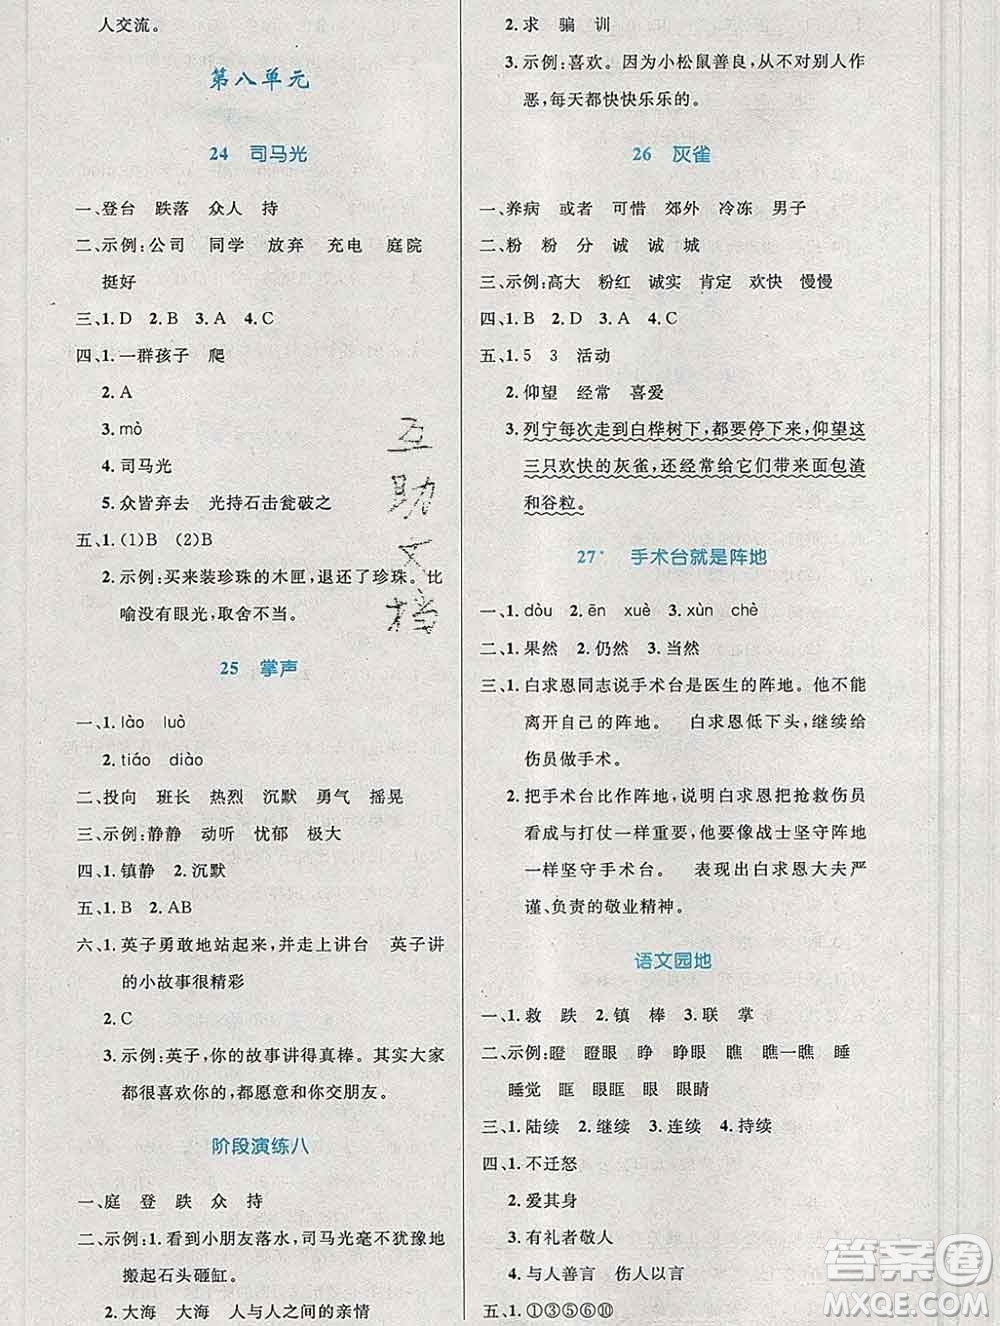 人交流。
第八单元
24 司马光
一、登台 跌落 众人 持
二、示例:公司 同学 放弃 充电 庭院
挺好
三、1.D 2.B 3.A 4.C
四、1.一群孩子 爬
2.A
3.mò
4.司马光
5.众皆弃去 光持石击瓮破之
五、1.(1)B (2)B
2.示例:买来装珍珠的木匣,退还了珍珠。比
喻没有眼光,取舍不当。
25 掌声
一、1.lào luò
2.tiáo diào
二、投向 班长 热烈 沉默 勇气 摇晃
三、示例:静静 动听 忧郁 极大
四、1.镇静 2.沉默
五、1.B 2.AB
六、1.英子勇敢地站起来,并走上讲台 英子讲
的小故事很精彩
2.C
3.示例:英子,你的故事讲得真棒。其实大家
都很喜欢你的,都愿意和你交朋友。
阶段演练八
一、庭 登 跌 众 持
二、示例:1.看到小朋友落水,司马光毫不犹豫地
搬起石头砸缸。
2.大海 大海 人与人之间的亲情
2.求 骗 训
3.示例:喜欢。因为小松鼠善良,从不对别人作
恶,每天都快快乐乐的。
26 灰雀
一、养病 或者 可惜 郊外 冷冻 男子
二、粉 粉 分 诚 诚 城
三、示例:高大 粉红 诚实 肯定 欢快 慢慢
四、1.B 2.D 3.A 4.C
五、1.5 3 活动
2.仰望 经常 喜爱
3.列宁每次走到白桦树下,都要停下来,仰望这
三只欢快的灰雀,还经常给它们带来面包渣
和谷粒。
27* 手术台就是阵地
一、1.dòu 2.ēn xuè 3.xùn chè
二、1.果然 2.仍然 3.当然
三、1.白求恩同志说手术台是医生的阵地。他不能
离开自己的阵地。 白求恩低下头,继续给
伤员做手术。
2.把手术台比作阵地,说明白求恩把抢救伤员
看成与打仗一样重要,他要像战士坚守阵地
一样坚守手术台。 表现出白求恩大夫严
谨、负责的敬业精神。
语文园地
一、1.救 跌 2.镇 棒 3.联 掌
二、示例:瞪 瞪眼 睁 睁眼 瞧 瞧一瞧 睡
睡觉 眶 眼眶 眼 眼睛
三、1.陆续 2.继续 3.连续 4.持续
四、1.不迁怒
2.爱其身
3.有礼者敬人
4.与人善言 伤人以言
五、1.①③⑤⑥⑩
互
助
文
档
答案圈
MXQE.COM